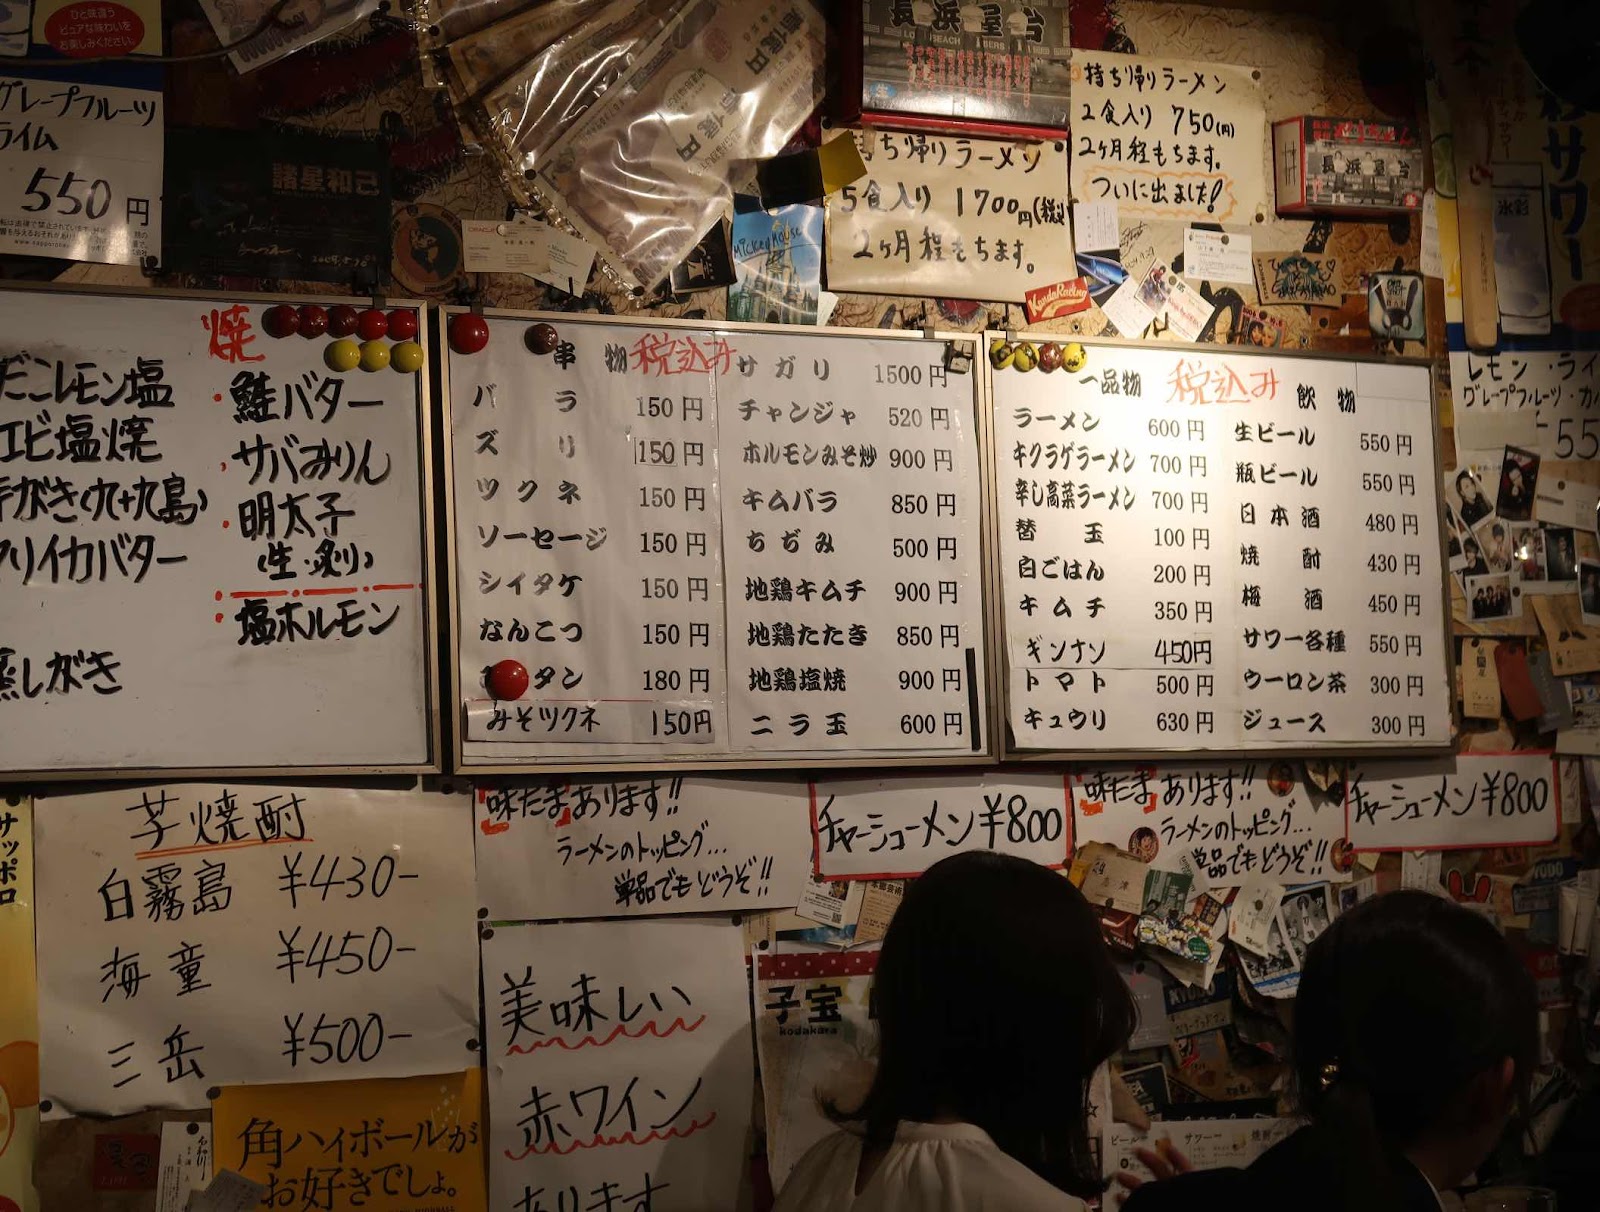 ひと味違う
ピュアな味わいを
お楽しみください。
グレープフルーツ
ライム
550円
諸星和己
長浜屋台
持ち帰りラーメン
2食入り 750(円)
2ヶ月程もちます。
ついに出ました!
持ち帰りラーメン
5食入り 1700円(税込
2ヶ月程もちます。
長浜屋台
MICKEY MOUSE
KandaRacing
焼
だこレモン塩
エビ塩焼
がき(九十九島)
ヤリイカバター
蒸しがき
鮭バター
サバみりん
明太子
(生・炙り)
塩ホルモン
串物 税込み
バラ 150円
ズリ 150円
ツクネ 150円
ソーセージ 150円
シイタケ 150円
なんこつ 150円
タン 180円
みそツクネ 150円
サガリ 1500円
チャンジャ 520円
ホルモンみそ炒 900円
キムバラ 850円
ちぢみ 500円
地鶏キムチ 900円
地鶏たたき 850円
地鶏塩焼 900円
ニラ玉 600円
一品物 税込み 飲物
ラーメン 600円
キクラゲラーメン 700円
辛し高菜ラーメン 700円
替玉 100円
白ごはん 200円
キムチ 350円
ギンナン 450円
トマト 500円
キュウリ 630円
生ビール 550円
瓶ビール 550円
日本酒 480円
焼酎 430円
梅酒 450円
サワー各種 550円
ウーロン茶 300円
ジュース 300円
サワー
氷彩
レモン・ライ
グレープフルーツ・カル
55
サッポロ
芋焼酎
白霧島 ¥430-
海童 ¥450-
三岳 ¥500-
味たまあります!!
ラーメンのトッピング…
単品でもどうぞ!!
チャーシューメン¥800
味たまあります!!
ラーメンのトッピング…
単品でもどうぞ!!
チャーシューメン¥800
美味しい
赤ワイン
あります
子宝
kodakara
角ハイボールが
お好きでしょ。
ビール サワー 焼酎